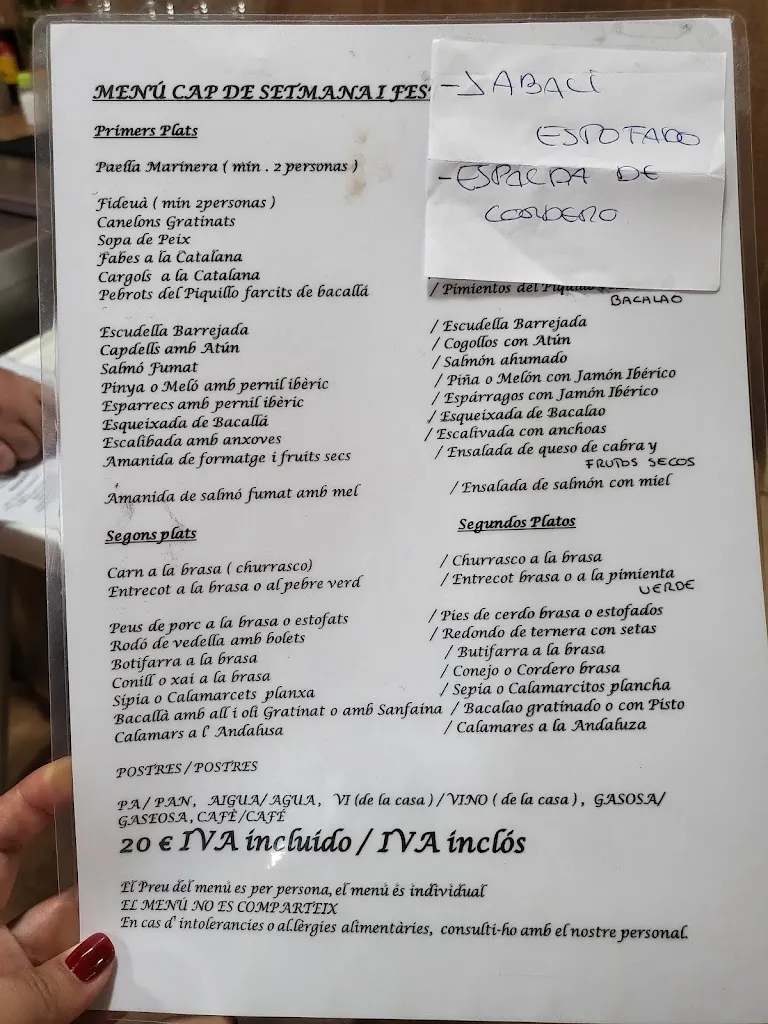 MENÚ CAP DE SETMANA I FES
- JABALÍ
ESTOFADO
- ESPALDA DE
CORDERO
Primers Plats
Paella Marinera ( mín . 2 personas )
Fideuà ( min 2personas )
Canelons Gratinats
Sopa de Peix
Fabes a la Catalana
Cargols a la Catalana
Pebrots del Piquillo farcits de bacallá / Pimientos del Piquillo
BACALAO
Escudella Barrejada / Escudella Barrejada
Capdells amb Atún / Cogollos con Atún
Salmó Fumat / Salmón ahumado
Pinya o Meló amb pernil ibèric / Piña o Melón con Jamón Ibérico
Esparrecs amb pernil ibèric / Espárragos con Jamón Ibérico
Esqueixada de Bacallá / Esqueixada de Bacalao
Escalibada amb anxoves / Escalivada con anchoas
Amanida de formatge i fruits secs / Ensalada de queso de cabra y
FRUTOS SECOS
Amanida de salmó fumat amb mel / Ensalada de salmón con miel
Segons plats Segundos Platos
Carn a la brasa ( churrasco) / Churrasco a la brasa
Entrecot a la brasa o al pebre verd / Entrecot brasa o a la pimienta
VERDE
Peus de porc a la brasa o estofats / Pies de cerdo brasa o estofados
Rodó de vedella amb bolets / Redondo de ternera con setas
Botifarra a la brasa / Butifarra a la brasa
Conill o xai a la brasa / Conejo o Cordero brasa
Sípia o Calamarcets planxa / Sepia o Calamarcitos plancha
Bacallà amb all i oli Gratinat o amb Sanfaina / Bacalao gratinado o con Pisto
Calamars a l' Andalusa / Calamares a la Andaluza
POSTRES / POSTRES
PA/ PAN, AIGUA/ AGUA, VI (de la casa ) / VINO ( de la casa ) , GASOSA/
GASEOSA, CAFÈ/CAFÉ
20 € IVA incluido / IVA inclós
El Preu del menú es per persona, el menú és individual
EL MENÚ NO ES COMPARTEIX
En cas d' intolerancies o al.lèrgies alimentàries, consulti-ho amb el nostre personal.